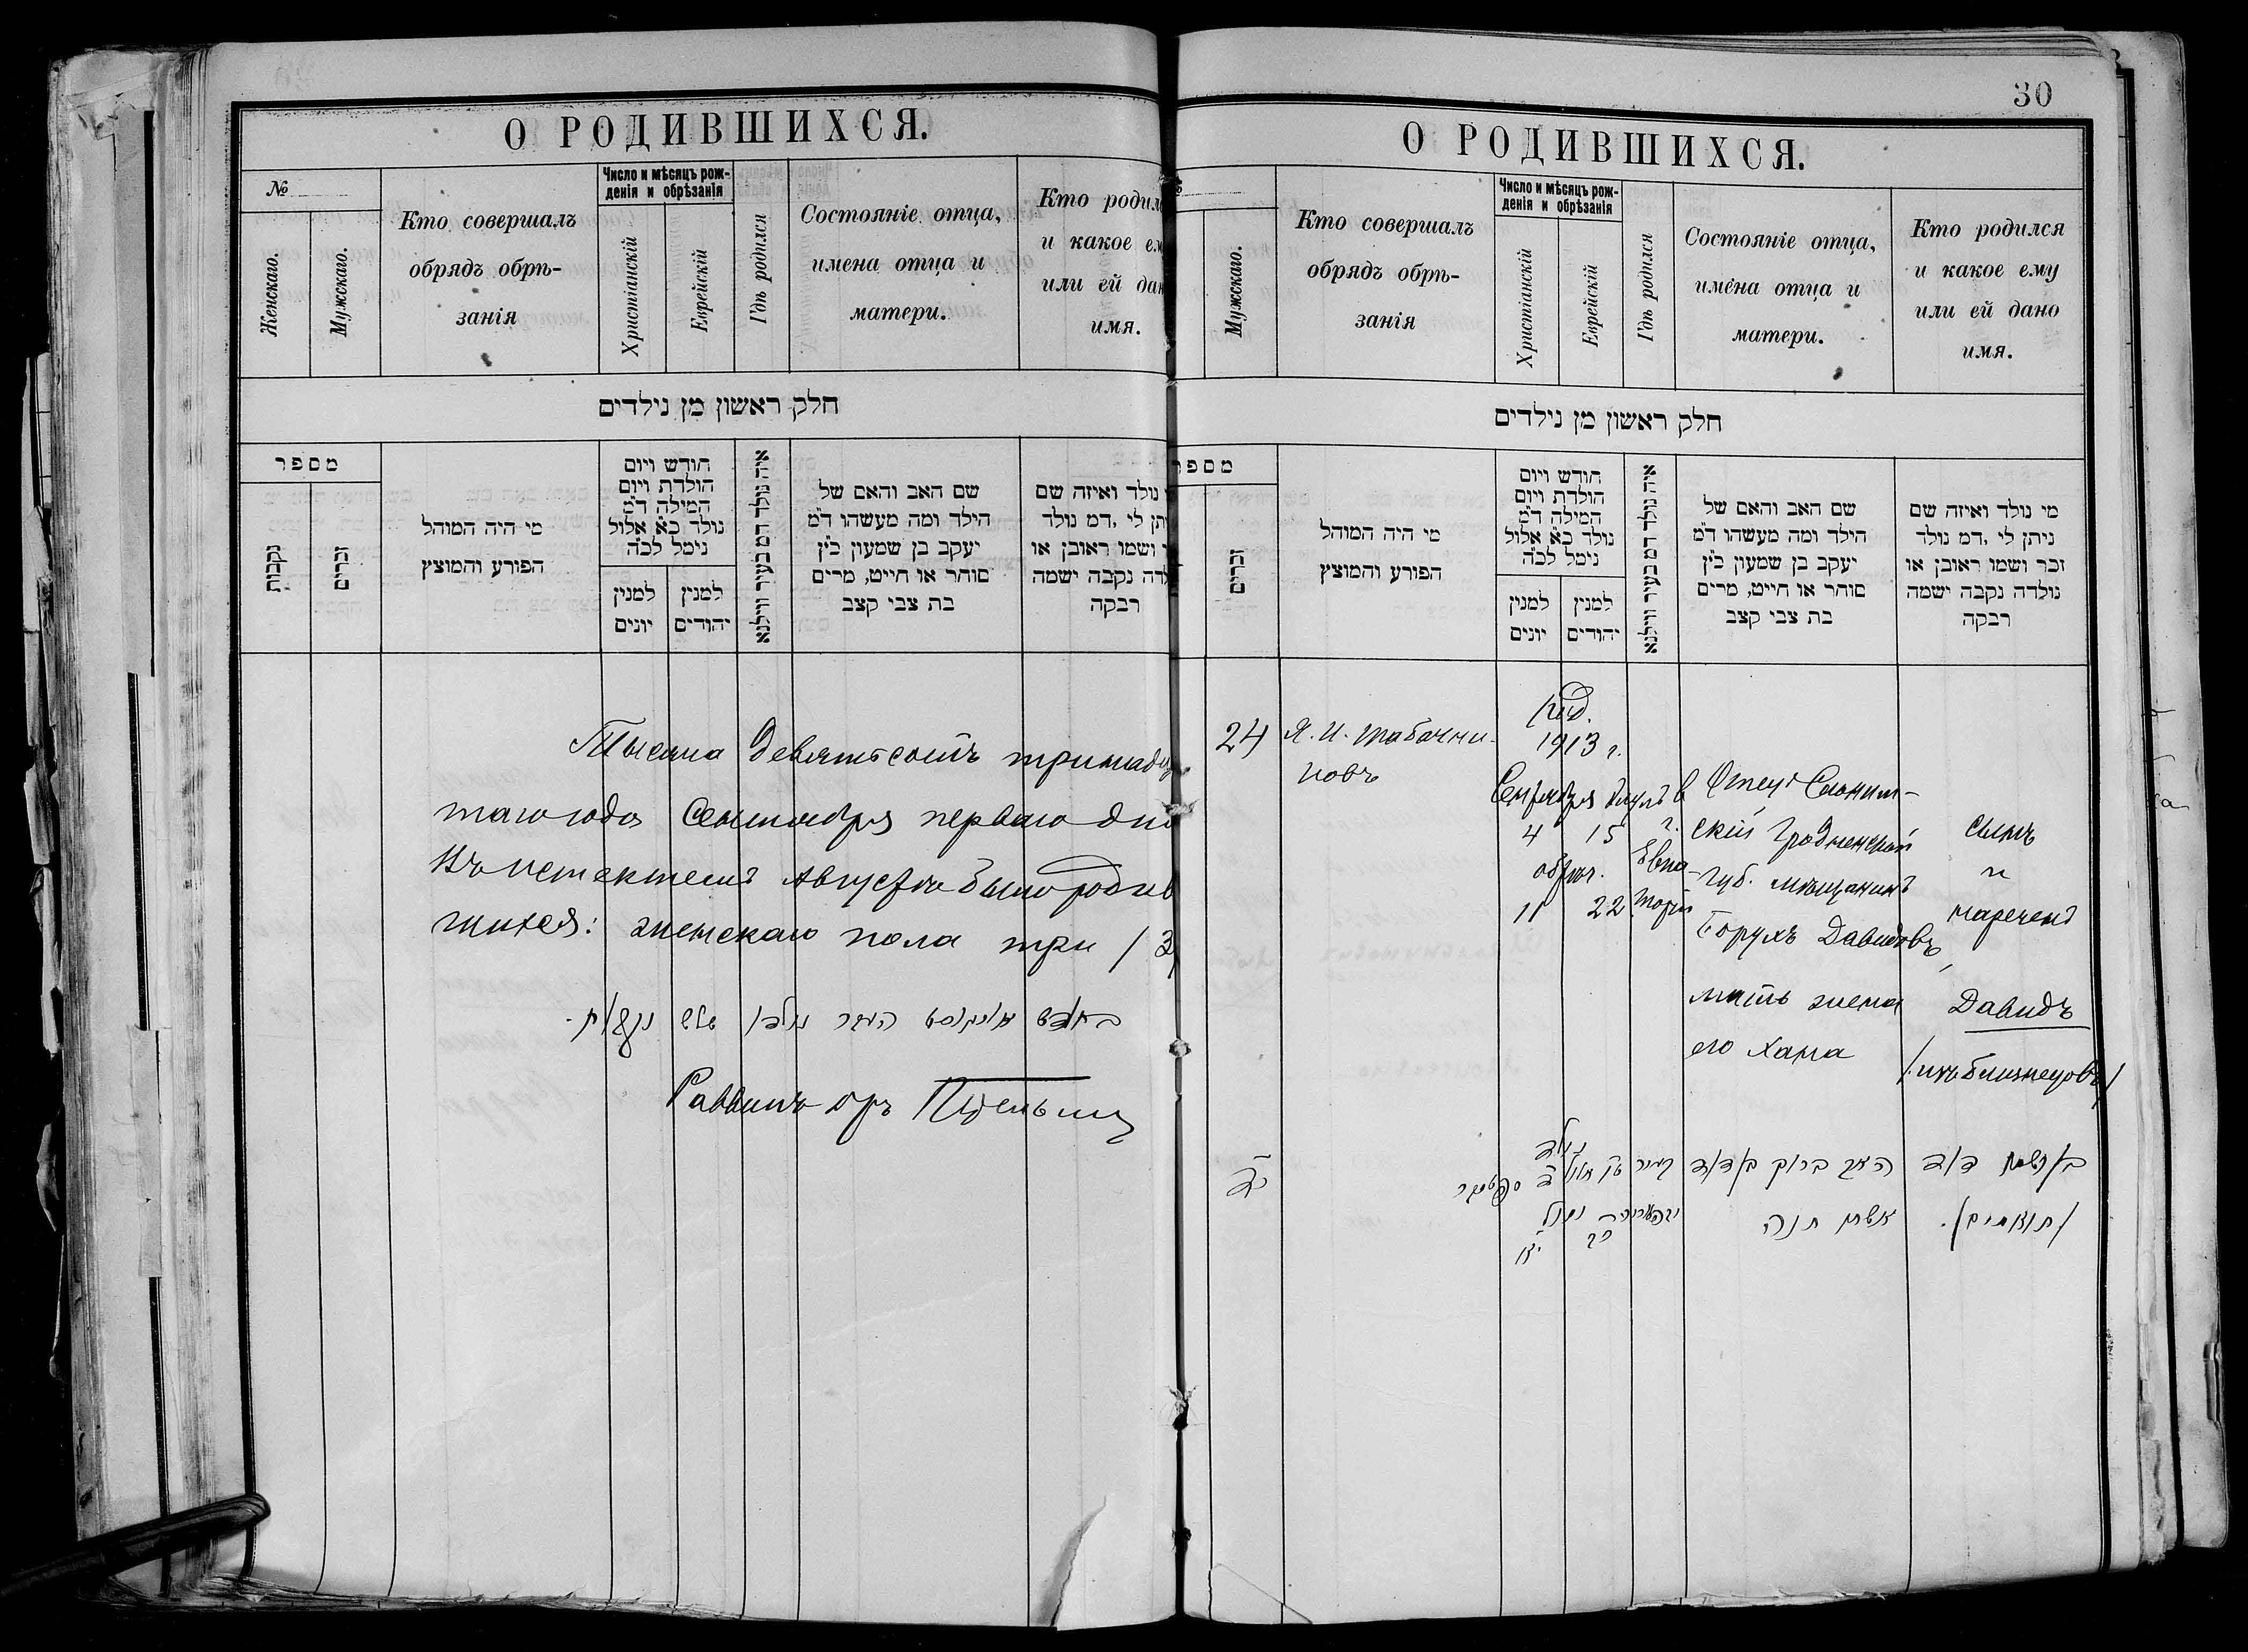 О РОДИВШИХСЯ.
№
Женскаго.
Мужскаго.
Кто совершалъ
обрядъ обрѣ-
занія
Число и мѣсяцъ рож-
денія и обрѣзанія
Христіанскій
Еврейскій
Гдѣ родился
Состояніе отца,
имена отца и
матери.
Кто родил
и какое ем
или ей дан
имя.
חלק ראשון מן נילדים
מספר
נקבות
זכרים
מי היה המוהל
הפורע והמוצץ
חודש ויום
הולדת ויום
המילה ד״מ
נולד כ״א אלול
נימל לכ״ה
למנין
יונים
למנין
יהודים
איה נולד דמ בעיר ווילנא
שם האב והאם של
הילד ומה מעשהו ד״מ
יעקב בן שמעון כ״ץ
סוחר או חייט, מרים
בת צבי קצב
נולד ואיזה שם
תן לי ,דמ נולד
ושמו ראובן או
לדה נקבה ישמה
רבקה
Тысяча девятьсотъ тринадц
таго года Сентября перваго дня
въ истекшемъ Августѣ было родив
шихся: женскаго пола три / 3
בחודש אויגוסט העבר נולדו שלש נקבות.
Раввинъ
30
О РОДИВШИХСЯ.
Мужскаго.
Кто совершалъ
обрядъ обрѣ-
занія
Число и мѣсяцъ рож-
денія и обрѣзанія
Христіанскій
Еврейскій
Гдѣ родился
Состояніе отца,
имена отца и
матери.
Кто родился
и какое ему
или ей дано
имя.
חלק ראשון מן נילדים
מספר
זכרים
מי היה המוהל
הפורע והמוצץ
חודש ויום
הולדת ויום
המילה ד״מ
נולד כ״א אלול
נימל לכ״ה
למנין
יונים
למנין
יהודים
איה נולד דמ בעיר ווילנא
שם האב והאם של
הילד ומה מעשהו ד״מ
יעקב בן שמעון כ״ץ
סוחר או חייט, מרים
בת צבי קצב
מי נולד ואיזה שם
ניתן לי ,דמ נולד
זכר ושמו ראובן או
נולדה נקבה ישמה
רבקה
24
Я. И. Табачни-
ковъ
род.
1913 г.
Сентября Элулъ
4 15
обрѣз.
11 22
в
г.
Евпа-
торіи
Отецъ Слоним-
скій Гродненской
губ. мѣщанинъ
Борухъ Давидовъ,
мать жена
его Хана
сынъ
и
нареченъ
Давидъ
/изъ близнецовъ/
כד
נולד
טו אלול ד ספטמבר
נימול
כב יא
העב ברוך ב דוד
אשתו חנה
בן ושמו דוד
/תואמים/.